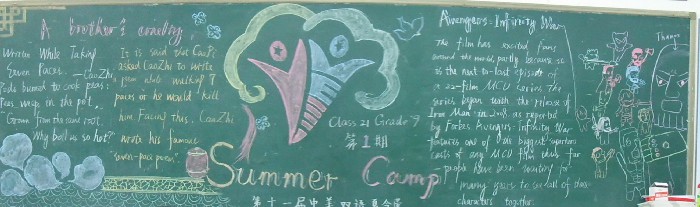 A brother's cruelty
Written While Taking
Seven Paces. — CaoZhi
Pods burned to cook peas:
Peas weep in the pot.
"Grown from the same root.
Why boil us so hot?"
It is said that CaoPi
asked CaoZhi to write
a poem while walking 7
paces or he would kill
him. Facing this, CaoZhi
wrote his famous
"seven-pace poem".
Class 21 Grade 7
第1期
Summer Camp
第十一届中美双语夏令营
Avengers: Infinity War
The film has excited fans
around the world, partly because it
is the next-to-last episode of
a 22-film MCU series. The
series began with the release of
Iron Man in 2008. as reported
by Forbes. Avengers: Infinity War
features one of the biggest superhero
casts of any MCU film thus far
people have been waiting for
many years to see all of these
characters together.
Thanos